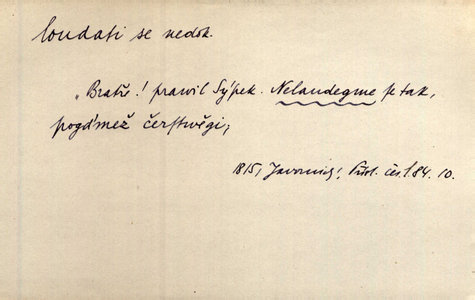 loudati se nedok.
„Bratře! prawil Sýpek. Nelaudegme se tak,
pogďmež čerstwěgi;
1815, Javornick, čes. 84. 10.